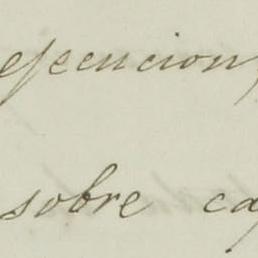 ejecucion,
sobre ca